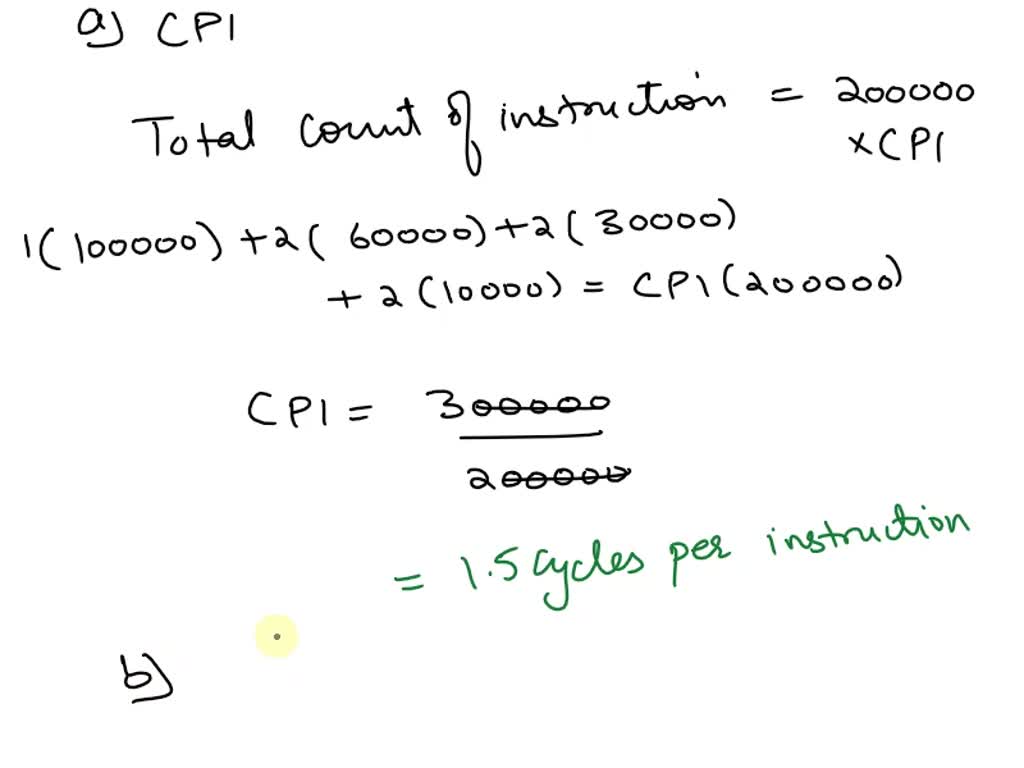 a) CPI
Total count of instruction = 200000
× CPI
1(100000) + 2(60000) + 2(30000)
+ 2(10000) = CPI(200000)
CPI = 300000
200000
= 1.5 cycles per instruction
b)